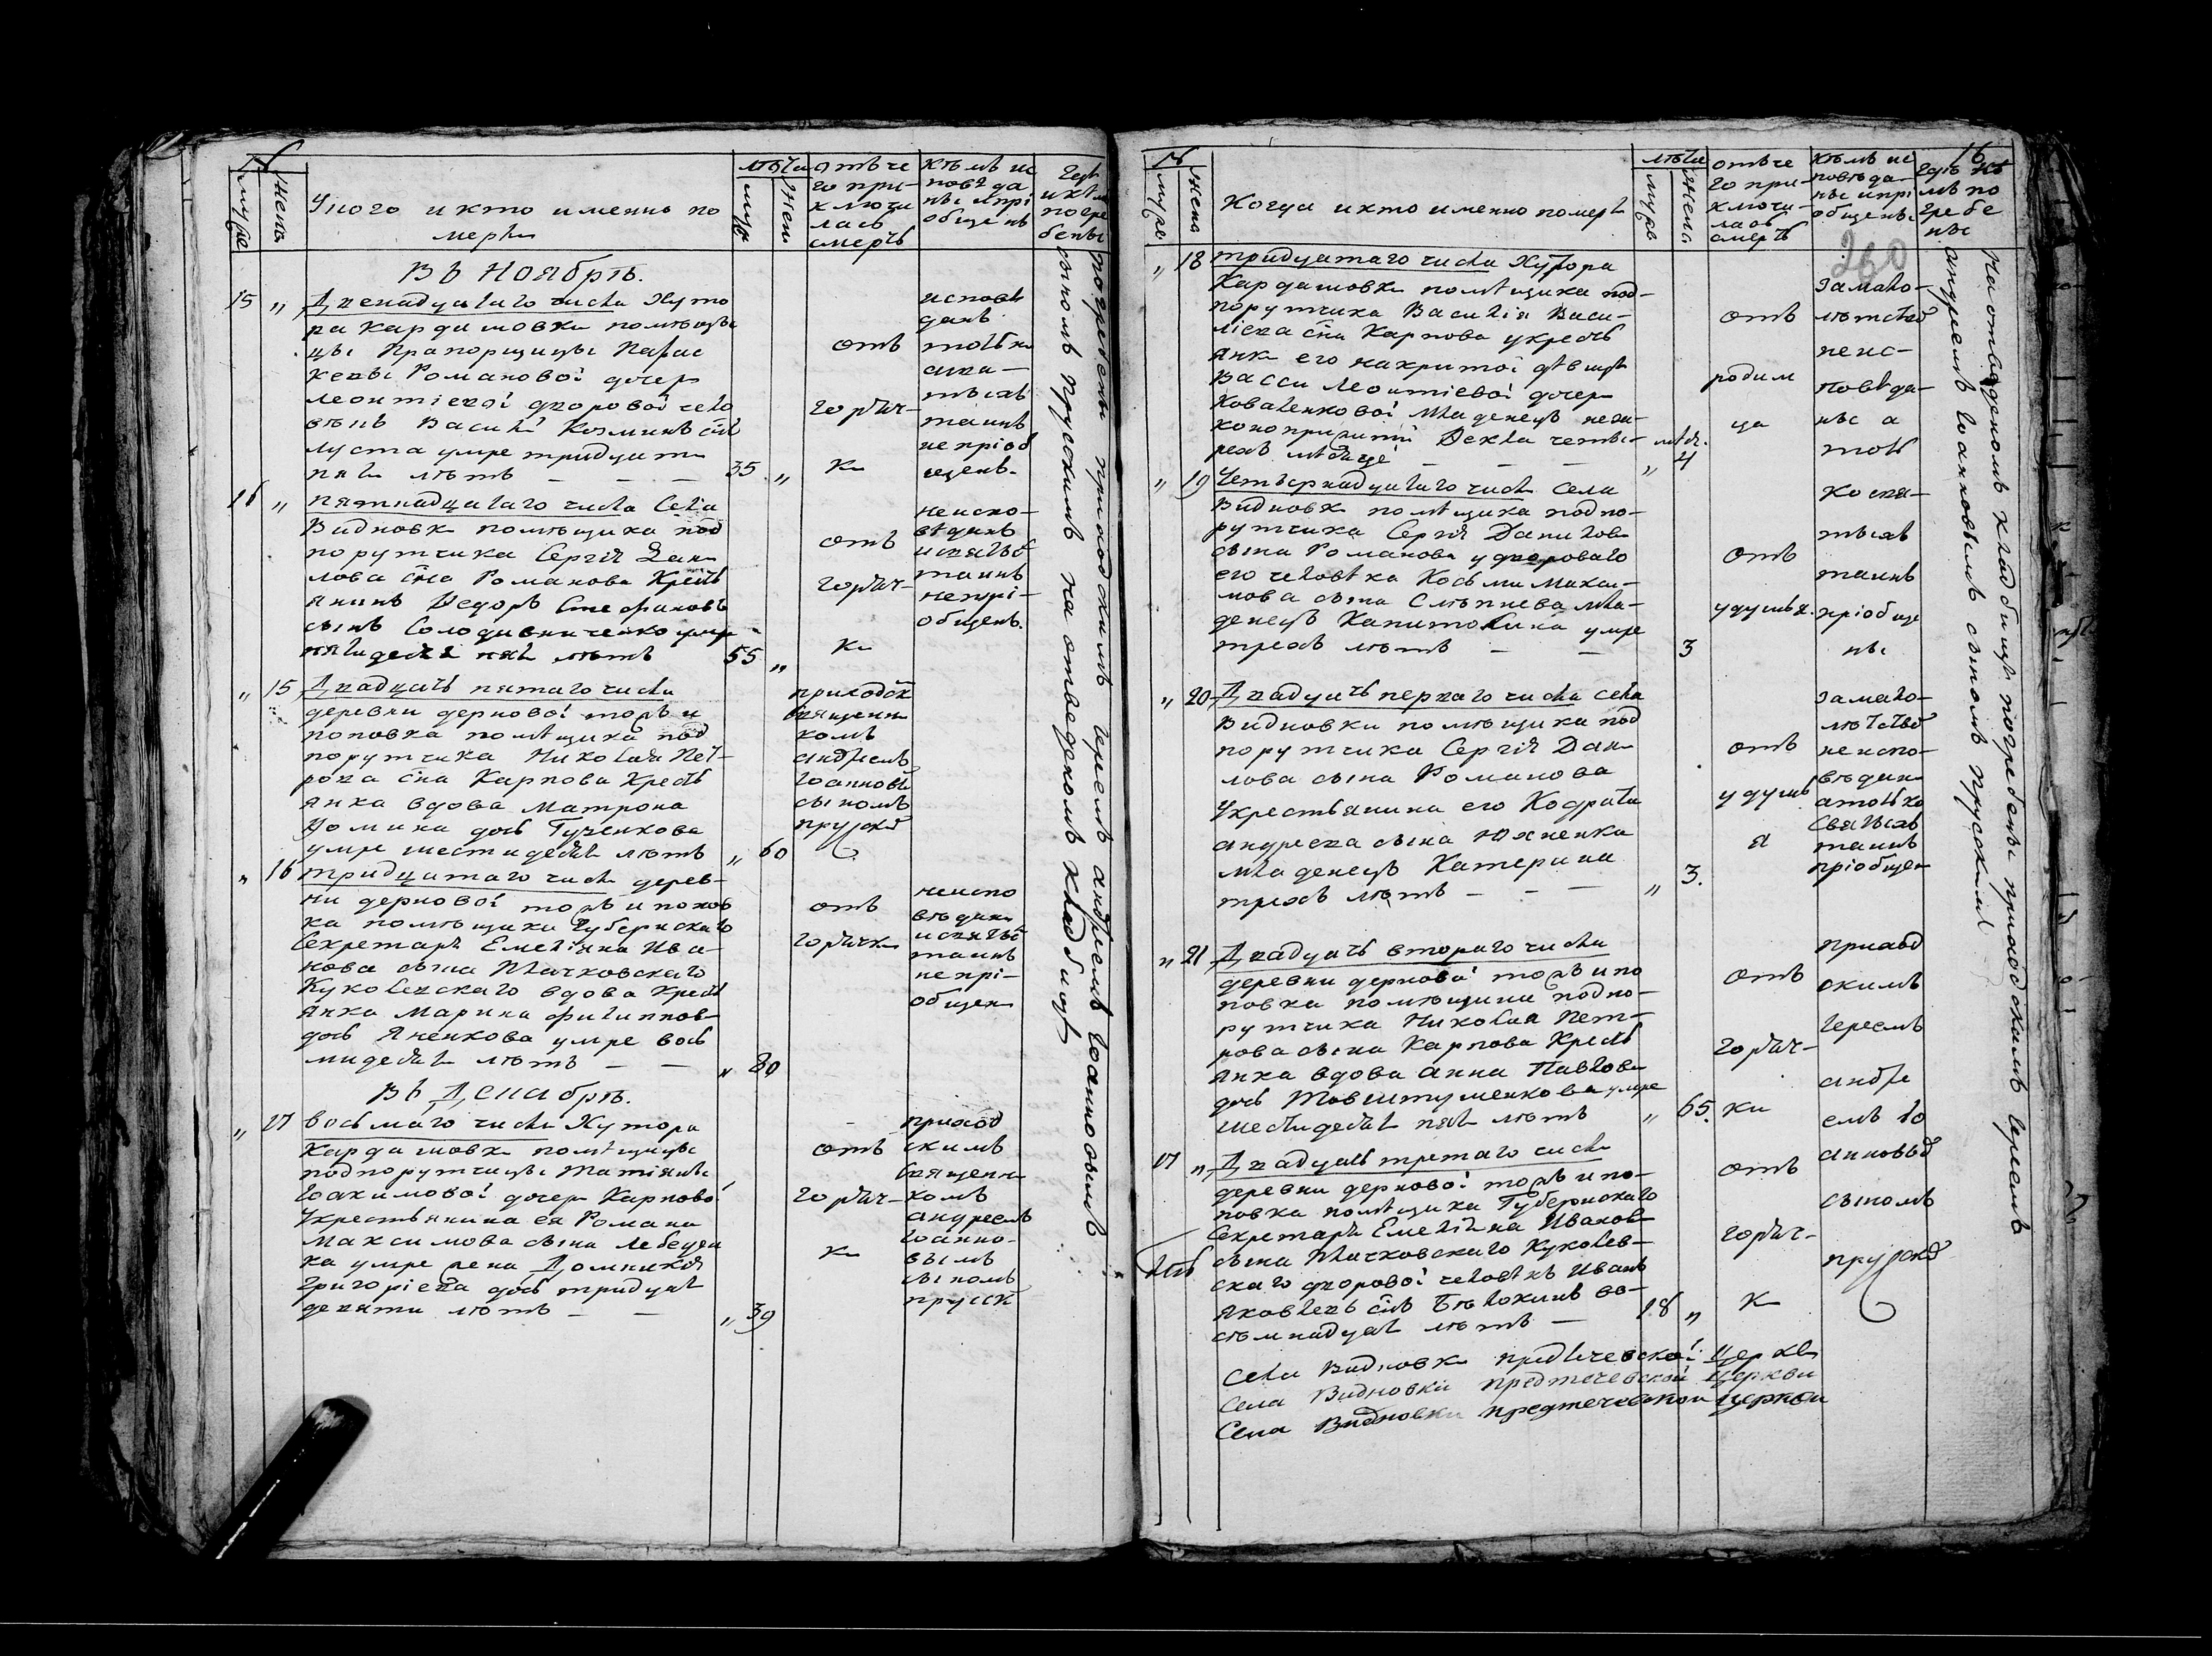 №
муже
жена
У кого и кто именно по
мерли
лѣта
муж
жен
отъ че
го при
ключи
лась
смерть
кѣмъ ис
повѣда
ны и прі
общенъ
Где
и кѣм
погре
бены
Въ Ноябрѣ.
15 „ Двенадцатаго числа Хуто
ра Кардашовки помѣщи
цы Прапорщицы Парас
кевы Романовой дочер
Леонтіевой дворовой чело
вѣкъ Василій Козминъ сынъ
умре тридцати
пяти лѣтъ — — — 35 „
отъ
горяч-
ки
исповѣ
данъ
толко
а свя-
тыхъ
таинъ
не пріоб
щенъ.
16 „ пятнадцатаго числа Села
Видновки помѣщика под
порутчика Сергія Дани
лова сна Романова Кресть
янинъ Ѳедоръ Стефановъ
сынъ Солодивниченко умре
пятидесят пяти лѣтъ 55 „
отъ
горяч-
ки
неиспо-
вѣданъ
и святыхъ
таинъ
непрі-
общенъ.
„ 15 Двадцать пятаго числа
деревни дерновой тожъ и
поповка помѣщика под
порутчика Николая Пет-
рова сна Карпова Кресть
янка вдова Матрона
Домина дочь Гученкова
умре шестидесяти лѣтъ „ 60
приходск
священни
комъ
андреемъ
Іоанновы
сыномъ
прускимъ
„ 16 тридцатаго числа дерев-
ни дерновой тожъ и попов
ка помѣщика Губернскаго
Секретаря Емеліяна Ива-
нова сына Плачковскаго
Куколевскаго вдова Кресть
янка Марина филиппов
дочь Яненкова умре вось
мидесяти лѣтъ — — „ 80
отъ
горячки
неиспо
вѣдани
и святых
таинъ
непрі-
общен
Въ Декабрѣ.
„ 17 восьмаго числа Хутора
Кардашовки помѣщицы
подпорутчицы Татіяны
Іоакимовой дочери Карповой
Укрестьянина ея Романа
Максимова сына Лебедя
ка умре жена Домникія
Григоріева дочь тридцати
девяти лѣтъ — — „ 39
отъ
горяч-
ки
приход
скимъ
священи
комъ
андреемъ
Іоанно-
вымъ
сыномъ
прусск
погребены приходскимъ Іереемъ андреемъ Іоанновымъ
сыномъ прускимъ на отведеномъ кладбищѣ
16
260
№
муже
жена
Когда и кто именно померъ
лѣта
муже
жена
отъ че
го при-
ключи-
лась
смерть
кѣмъ ис
повѣда-
ны и прі
общены
Гдѣ кѣ
мъ по
гребе
ны
„ 18 тридцатаго числа Хутора
Кардашовки помѣщика под-
порутчика Василія Васи-
ліева сна Карпова укресть
янки его накритой дѣвицы
Васси Леонтіевой дочери
Коваленковой младенецъ неза-
коноприжитій Ѳекла четы-
рехъ мѣсяцей — — „ 4
мѣся.
отъ
родим
ца
за мало-
лѣтствомъ
неис-
повѣда-
ны а
толь
ко свя-
тыхъ
таинъ
пріобще
ны
„ 19 Четвернадцатаго числа Села
Видновки помѣщика подпо-
рутчика Сергія Данилов
сына Романова у двороваго
его человѣка Косьми Макси-
мова сына Слѣпнева мла-
денецъ Капитолина умре
трехъ лѣтъ — — 3
отъ
удушья.
„ 20 Двадцать перваго числа Села
Видновки помѣщика под
порутчика Сергія Дани
лова сына Романова
Укрестьянина его Кодрата
андреева сына Юхненка
младенецъ Катерина
трехъ лѣтъ — — — „ 3.
отъ
удушь
я
за мало-
лѣтств
неиспо-
вѣдана
а только
Святыхъ
таинъ
пріобщен
„ 21 Двадцать втораго числа
деревни дерновой тожъ и по
повка помѣщика подпо-
рутчика Николая Пет-
рова сына Карпова Кресть
янка вдова анна Павлова
дочь Товштушенкова умре
шестидесяти пяти лѣтъ „ 65.
отъ
горяч-
ки
приход
скимъ
Іереемъ
андре
емъ Іо
анновым
сыномъ
прускимъ
17 „ Двадцать третаго числа
деревни дерновой тожъ и по-
повка помѣщика Губернскаго
Секретаря Емеліяна Иванова
сына Плачковскаго Куколев-
скаго дворовой человѣкъ Иванъ
Яковлевъ снъ Бѣлокинъ во-
семнадцати лѣтъ — 18 „
отъ
горяч-
ки
На отведеномъ кладбищѣ погребены приходскимъ Іереемъ
андреемъ Іоанновымъ сыномъ прускимъ
Села Видновки предтечевской Церкви
Села Видновки предтечевской Церкви
Села Видновки предтечевской церкви